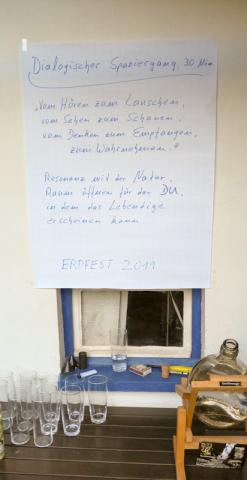 Dialogischer Spaziergang, 30 Min
„Vom Hören zum Lauschen,
vom Sehen zum Schauen,
vom Denken zum Empfangen,
zum Wahrnehmen."
Resonanz mit der Natur,
Raum öffnen für das DU,
in dem das Lebendige
erscheinen kann
ERDFEST 2019